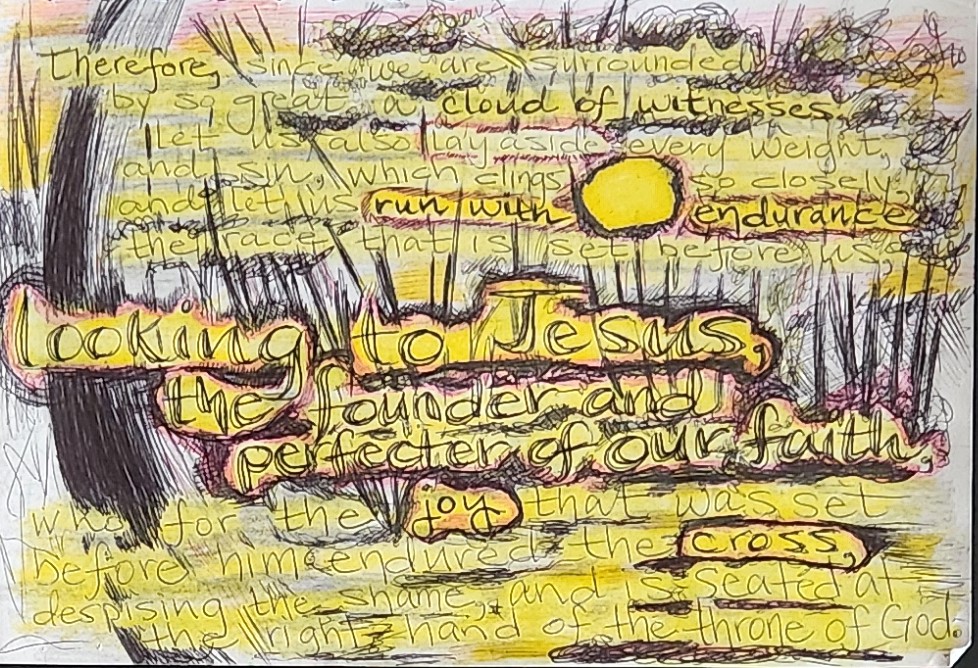 Therefore, since we are surrounded
by so great a cloud of witnesses,
Let us also lay aside every weight,
and sin, which clings so closely,
and let us run with endurance
the race that is set before us,
looking to Jesus,
the founder and
perfecter of our faith,
who for the joy that was set
before him endured the cross,
despising the shame, and is seated at
the right hand of the throne of God.